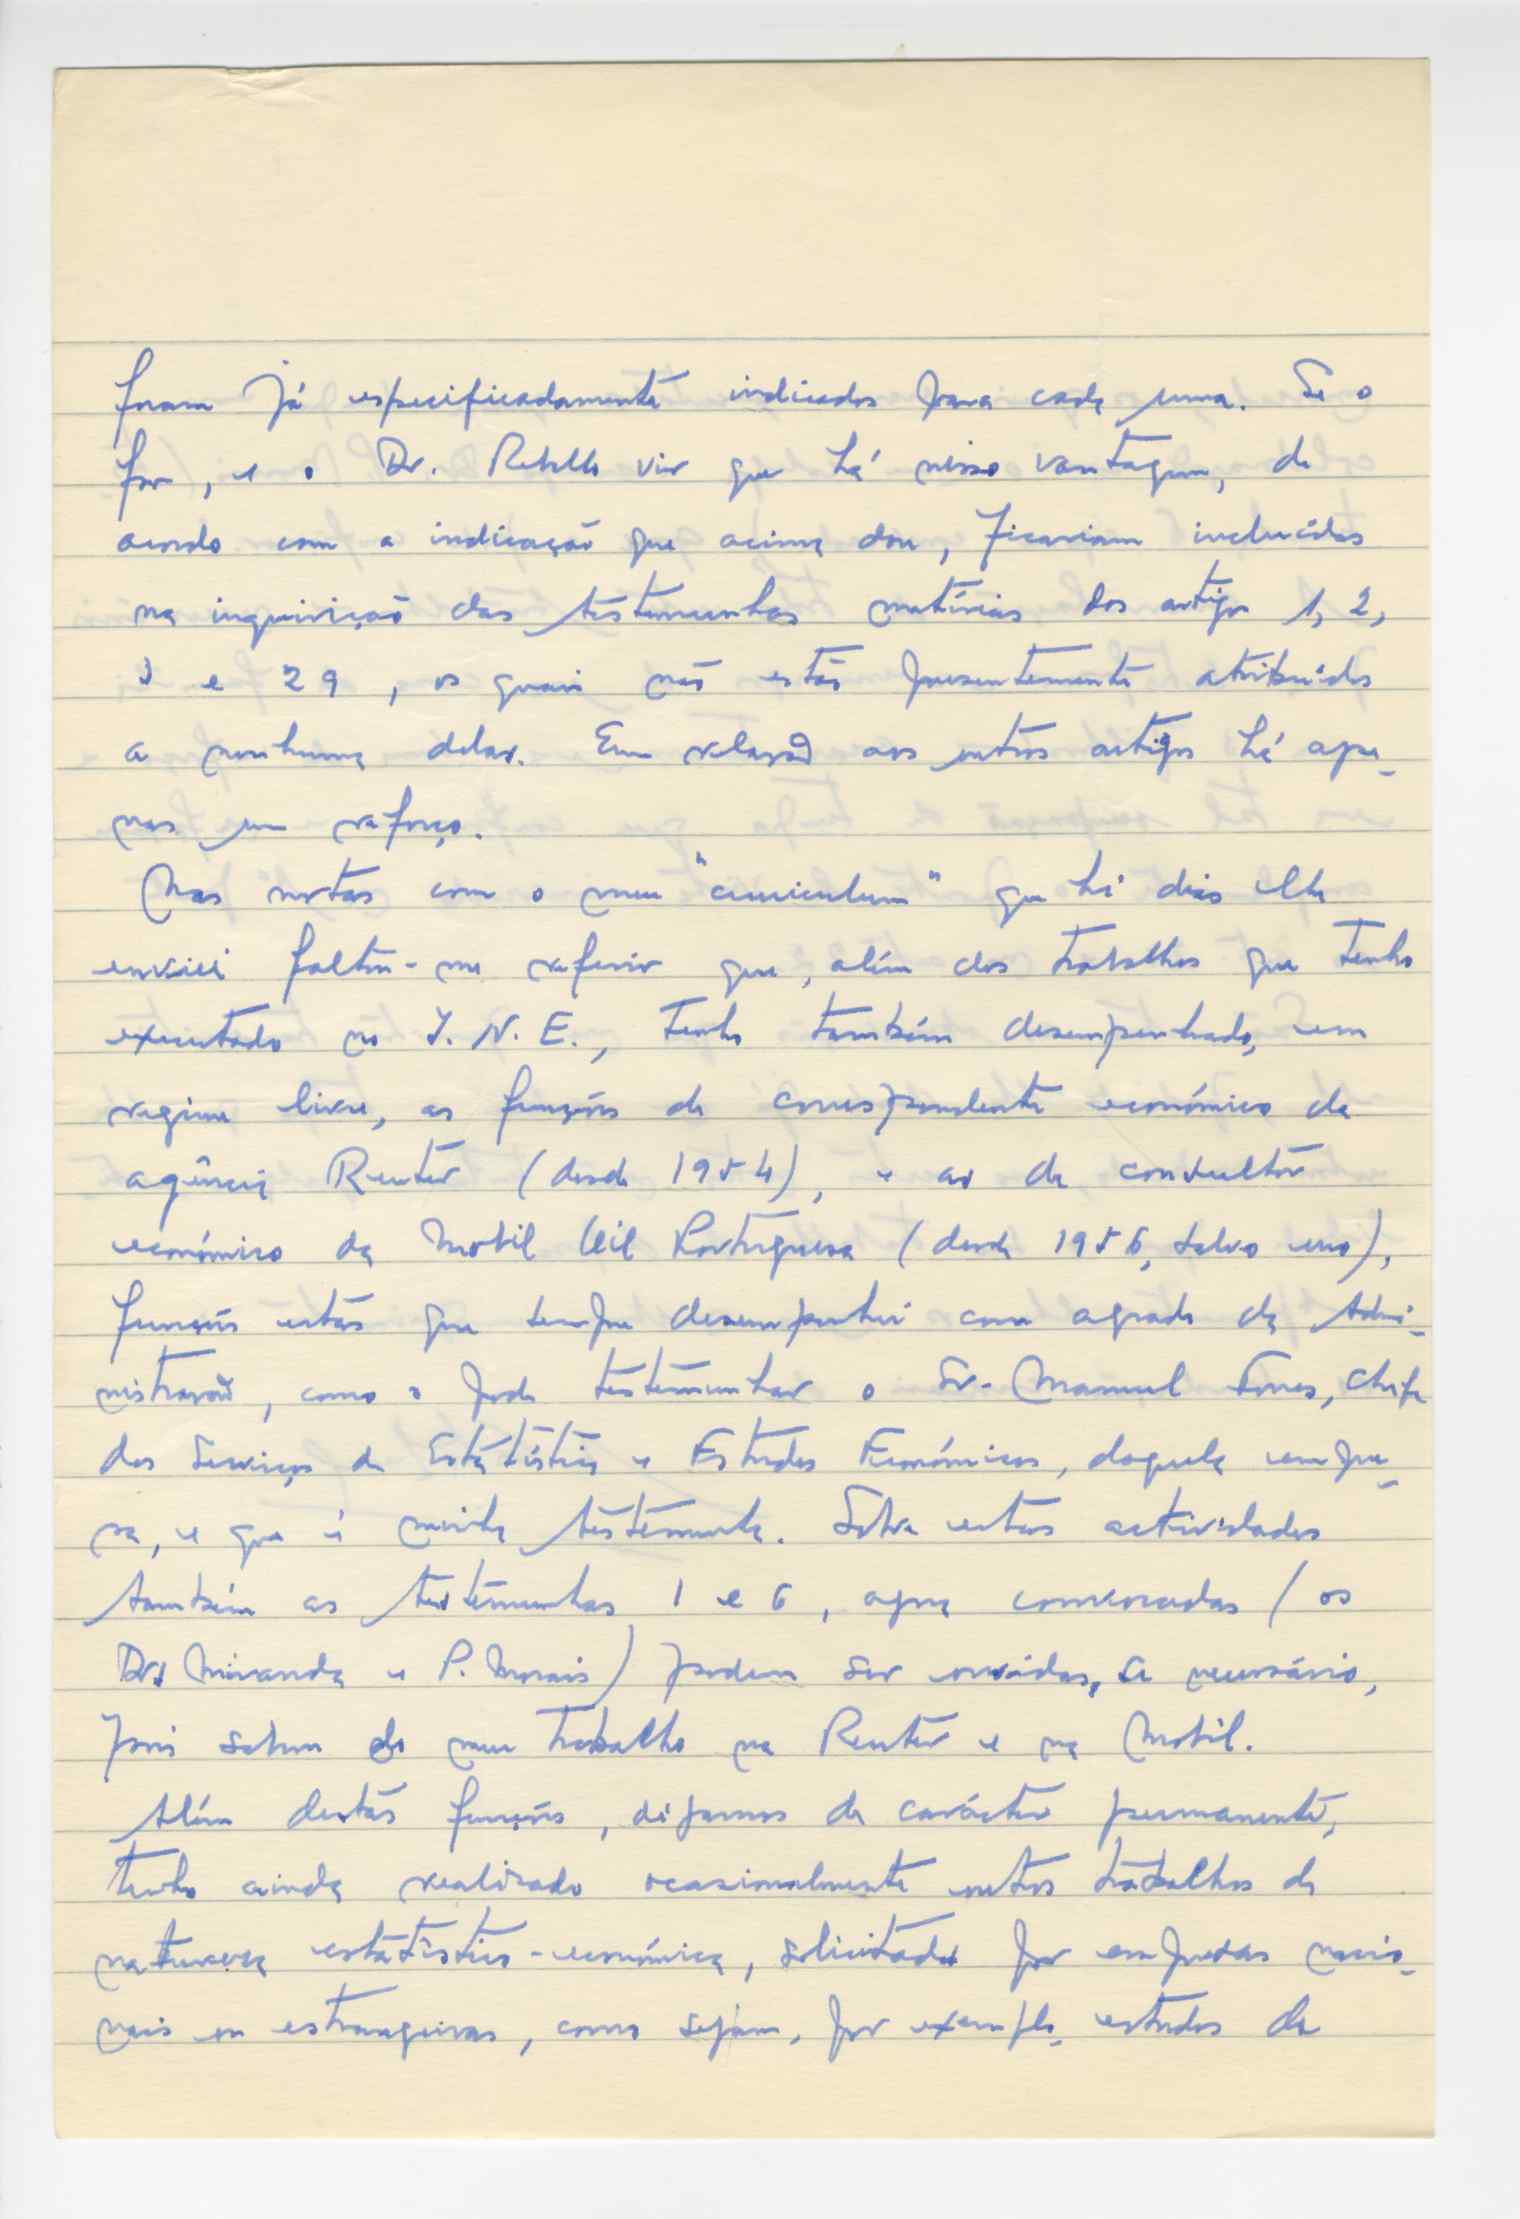 foram já especificadamente indicados para cada uma. Se o
for, e o Dr. Rebello vir que há nisso vantagem, de
acordo com a indicação que acima dou, ficariam incluídas
na inquirição das testemunhas matérias dos artigos 1, 2,
3 e 29, os quais não estão presentemente atribuídos
a nenhuma delas. Em relação aos outros artigos há ape-
nas um reforço.
Nas notas com o meu "curriculum" que há dias lhe
enviei faltou-me referir que, além dos trabalhos que tenho
executado no I.N.E., tenho também desempenhado, em
regime livre, as funções de correspondente económico da
agência Reuter (desde 1954), e as de consultor
económico da Mobil Oil Portuguesa (desde 1956, salvo erro),
funções estas que sempre desempenhei com agrado da Admi-
nistração, como o pode testemunhar o Sr. Manuel Torres, Chefe
dos Serviços de Estatística e Estudos Económicos, daquela empre-
sa, e que é minha testemunha. Sobre estas actividades
também as testemunhas 1 e 6, agora convocadas (os
Drs Miranda e P. Morais) podem ser ouvidas, se necessário,
pois sabem do meu trabalho na Reuter e na Mobil.
Além destas funções, digamos de carácter permanente,
tenho ainda realizado ocasionalmente outros trabalhos de
natureza estatístico-económica, solicitados por empresas nacio-
nais ou estrangeiras, como sejam, por exemplo, estudos de